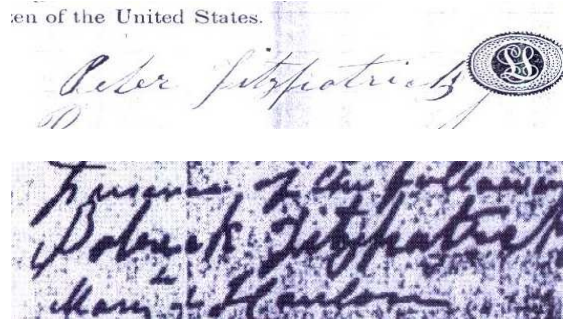 zen of the United States.
Peter Fitzpatrick
LS
of the following
Fitzpatrick
Mary Hanlon